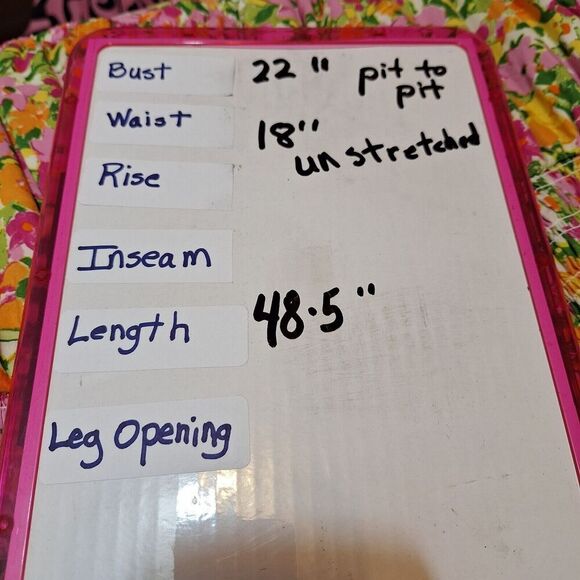 Bust 22" pit to
pit
Waist 18"
unstretched
Rise
Inseam
Length 48.5"
Leg Opening